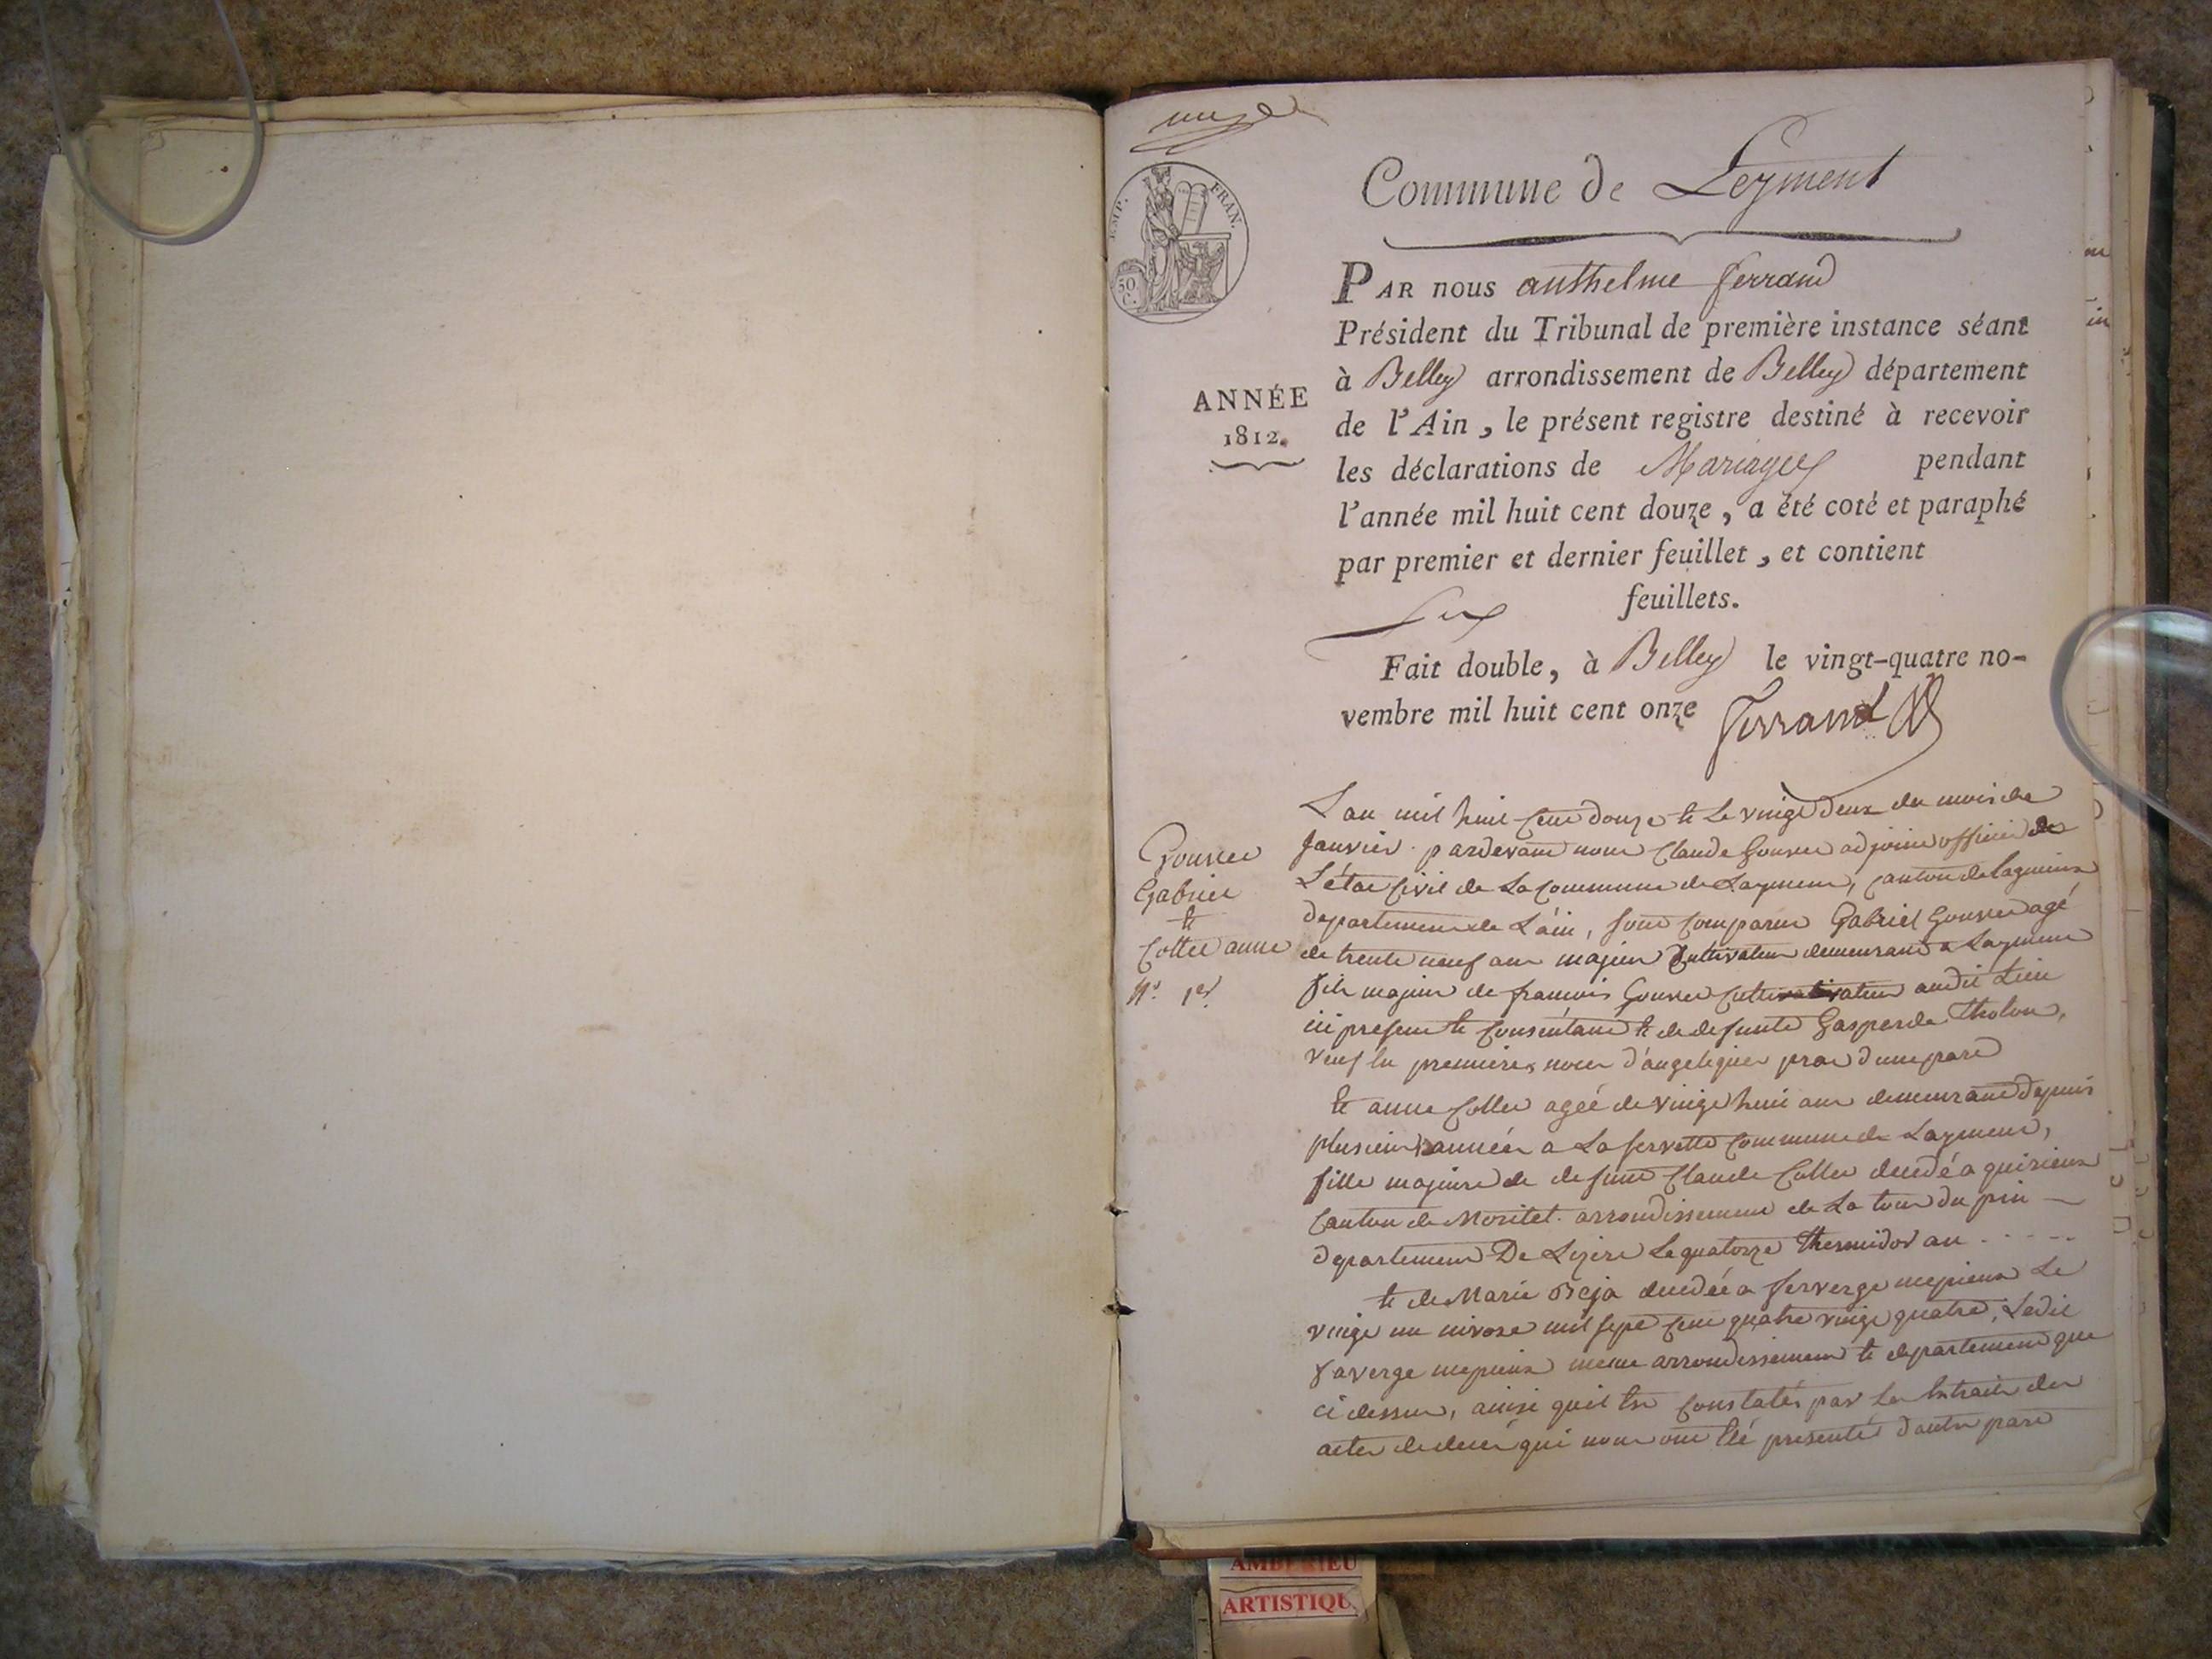 Commune de Leyment
IMP. FRAN.
50 C.
PAR nous anthelme ferrand
Président du Tribunal de première instance séant
à Belley arrondissement de Belley département
ANNÉE
1812.
de l'Ain, le présent registre destiné à recevoir
les déclarations de Mariages pendant
l'année mil huit cent douze, a été coté et paraphé
par premier et dernier feuillet, et contient
Six feuillets.
Fait double, à Belley le vingt-quatre no-
vembre mil huit cent onze Ferrand
Gouvet
Gabriel
et
Collet anne
N.º 1er
L'an mil huit cent douze et le vingt deux du mois de
Janvier pardevant nous Claude Gouvet adjoint officier de
L'état Civil de La Commune de Layment, canton de lagnieux
departement de L'ain, sont comparus Gabriel Gouvet agé
de trente neuf ans majeur Cultivateur demeurant a Layment
fils majeur de francois Gouvet Cultivateur audit Lieu
ici present et Consentant et de defunte Gasparde Tholon,
veuf en premieres noces d'angelique d'une part
et anne Collet ageé de vingt huit ans demeurant depuis
plusieurs années a La servette Commune de Layment,
fille majeure de defunt Claude Collet decedé a quirieux
Canton de Morestel arrondissement de La tour du pin
departement De Lizere Le quatorze thermidor an - - - -
et de Marie decedée a Serverge mepieux Le
vingt un nivose mil sept cent quatre vingt quatre, Ledit
Saverge mepieux meme arrondissement et departement que
ci dessus, ainsi quil est Constatés par les Extraits des
actes de deces qui nous ont été presentés d'autre part